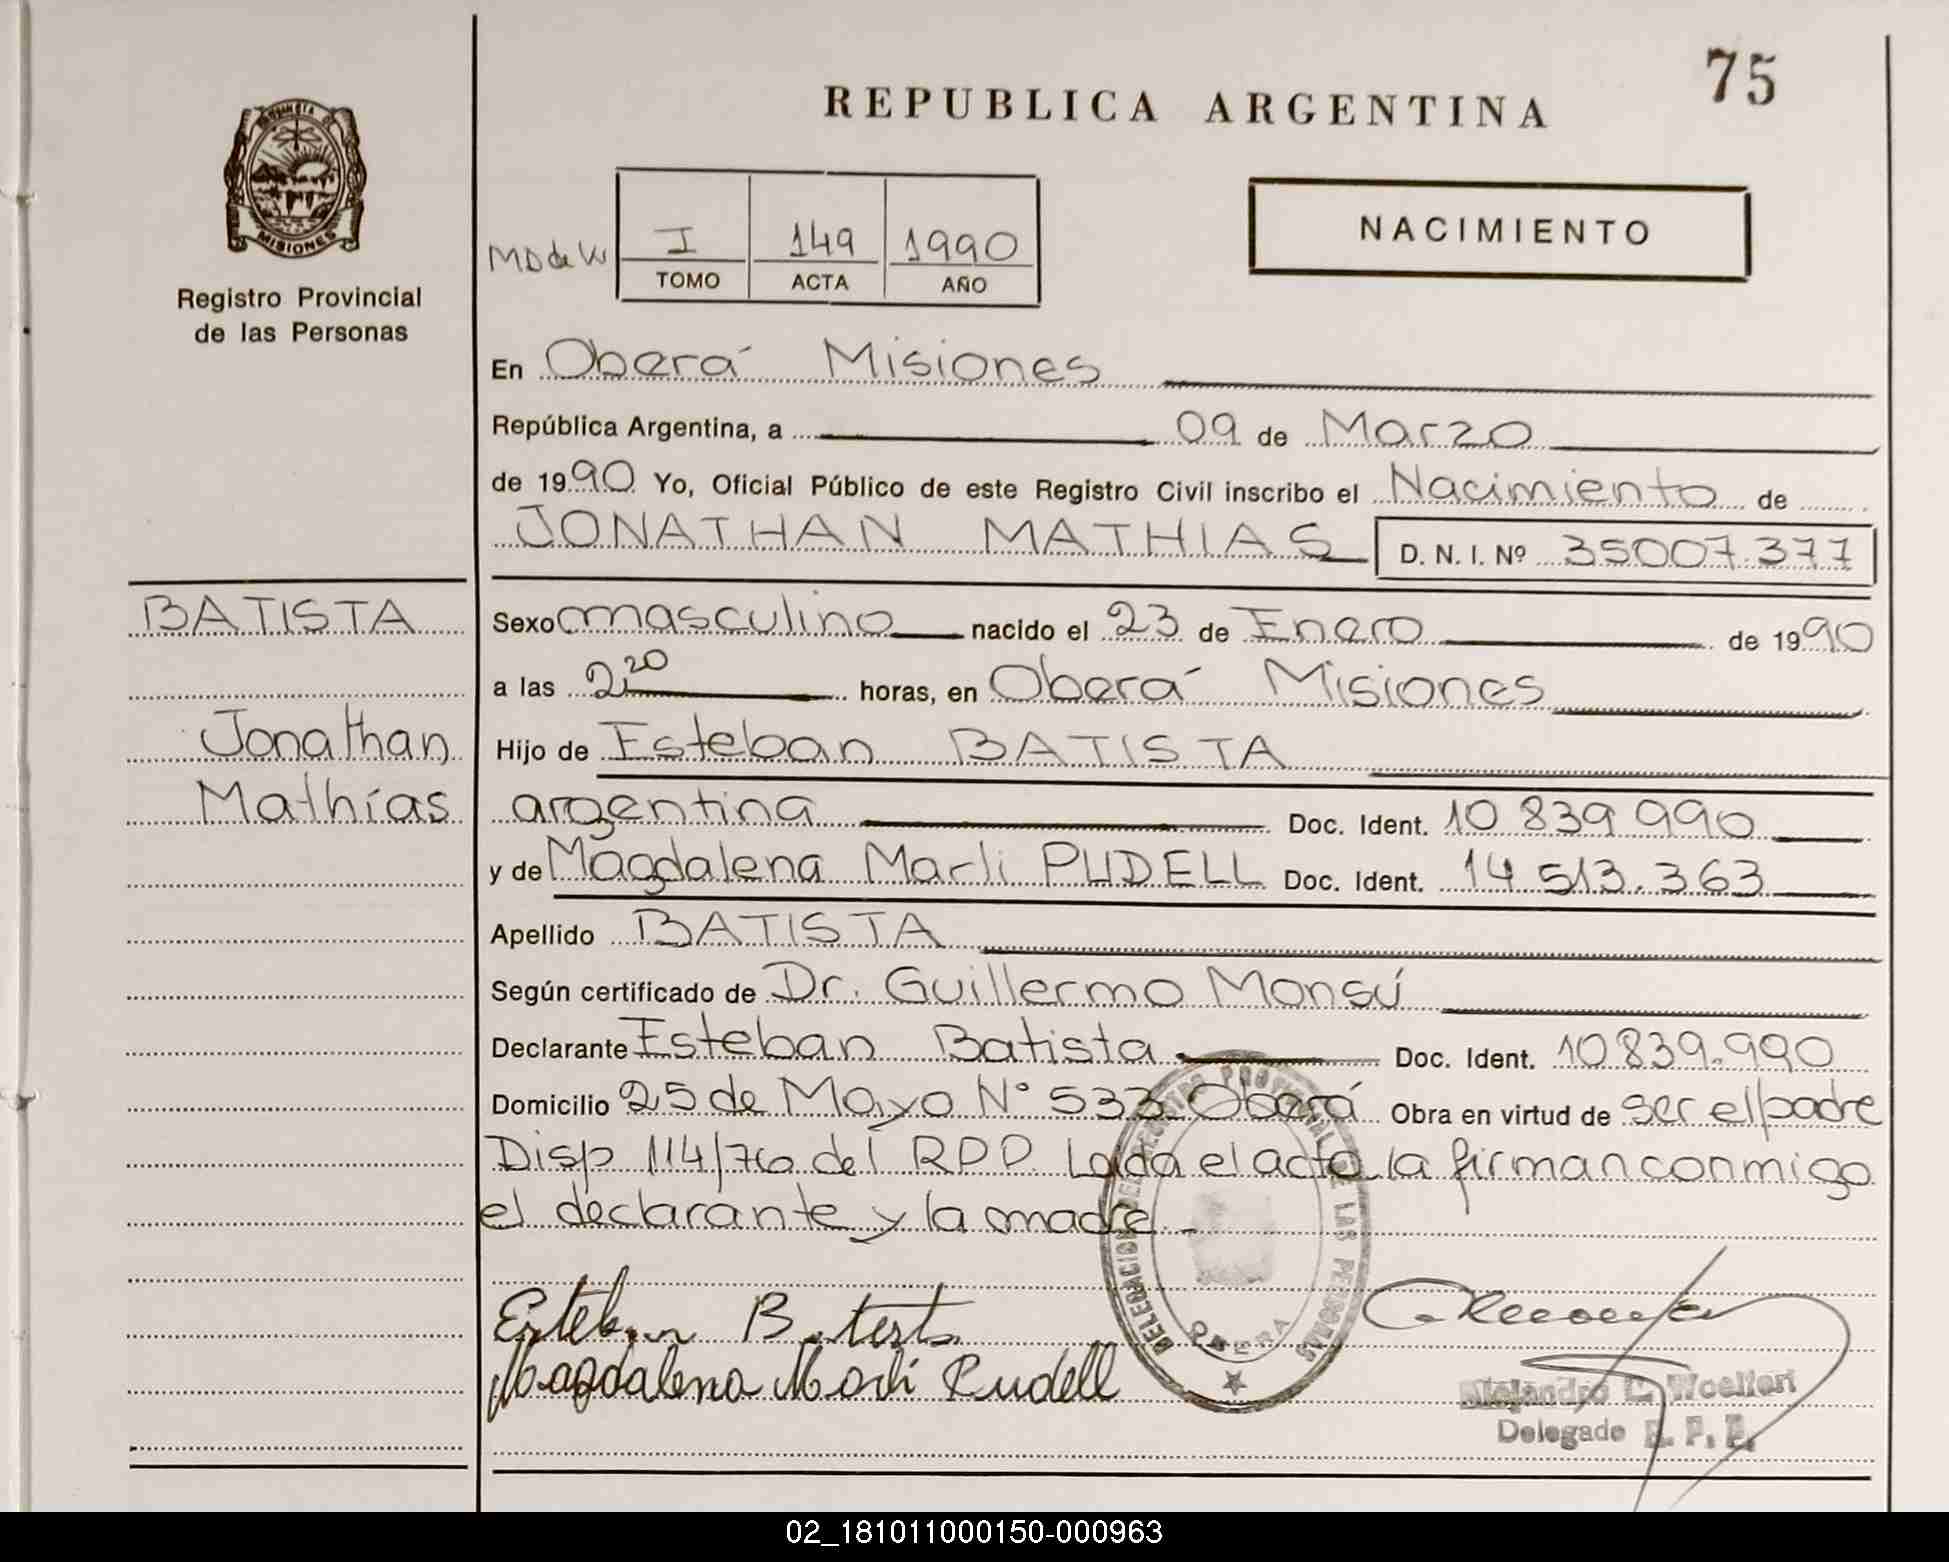 75
REPUBLICA ARGENTINA
NACIMIENTO
I 149 1990
TOMO ACTA AÑO
MISIONES
Registro Provincial
de las Personas
En Oberá Misiones
República Argentina, a 09 de Marzo
de 1990 Yo, Oficial Público de este Registro Civil inscribo el Nacimiento de
JONATHAN MATHIAS D. N. I. Nº 35007.377
BATISTA
Jonathan
Mathías
Sexo masculino nacido el 23 de Enero de 1990
a las 2,20 horas, en Oberá Misiones
Hijo de Esteban BATISTA
argentina Doc. Ident. 10 839 990
y de Magdalena Marli PUDELL Doc. Ident. 14 513.363
Apellido BATISTA
Según certificado de Dr. Guillermo Monsú
Declarante Esteban Batista Doc. Ident. 10839.990
Domicilio 25 de Mayo N° 533 Oberá Obra en virtud de ser el padre
Disp 114/76 del RPP. Leida el acta la firman conmigo
el declarante y la madre.-
DELEGACION DEL REGISTRO PROVINCIAL DE LAS PERSONAS
OBERA
Esteban Batista
Magdalena Marli Pudell
Alejandro
Delegado R. P. P.
02_181011000150-000963